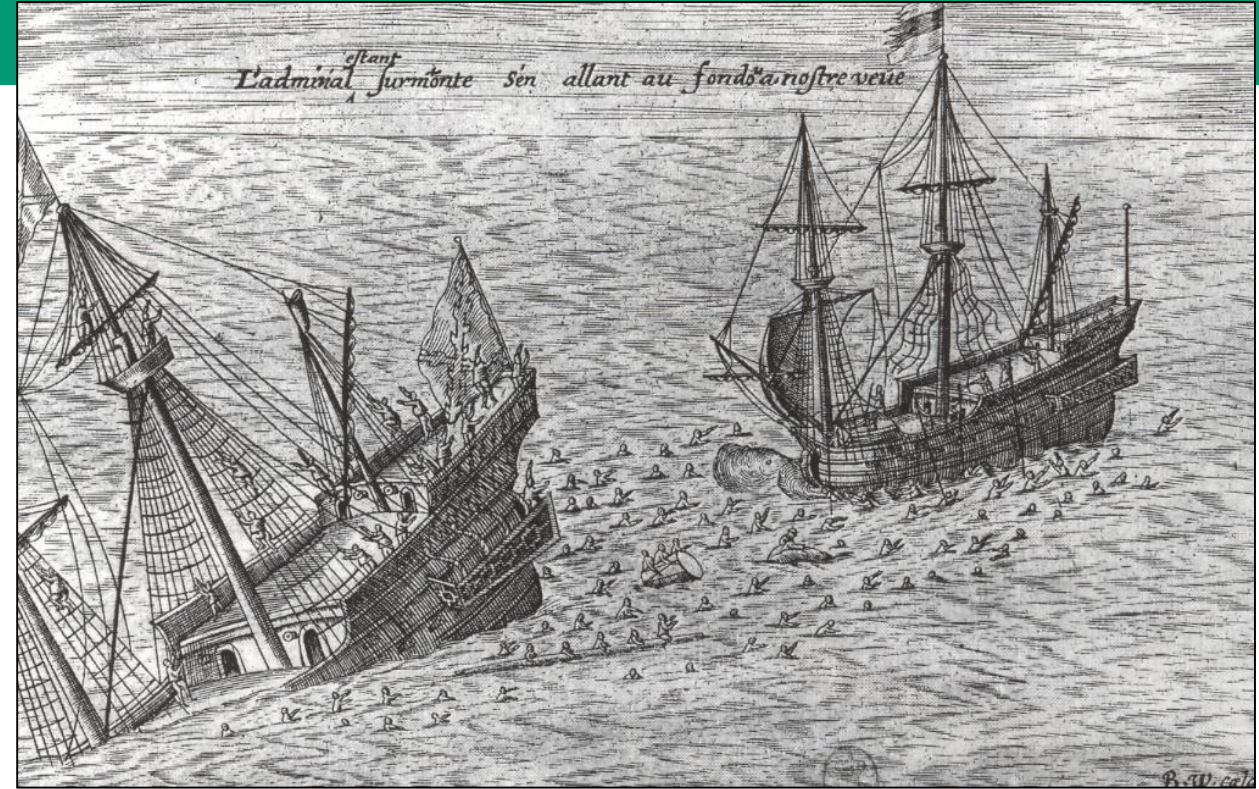 L'admiral estant surmonte s'en allant au fond a nostre veüe
B. W.